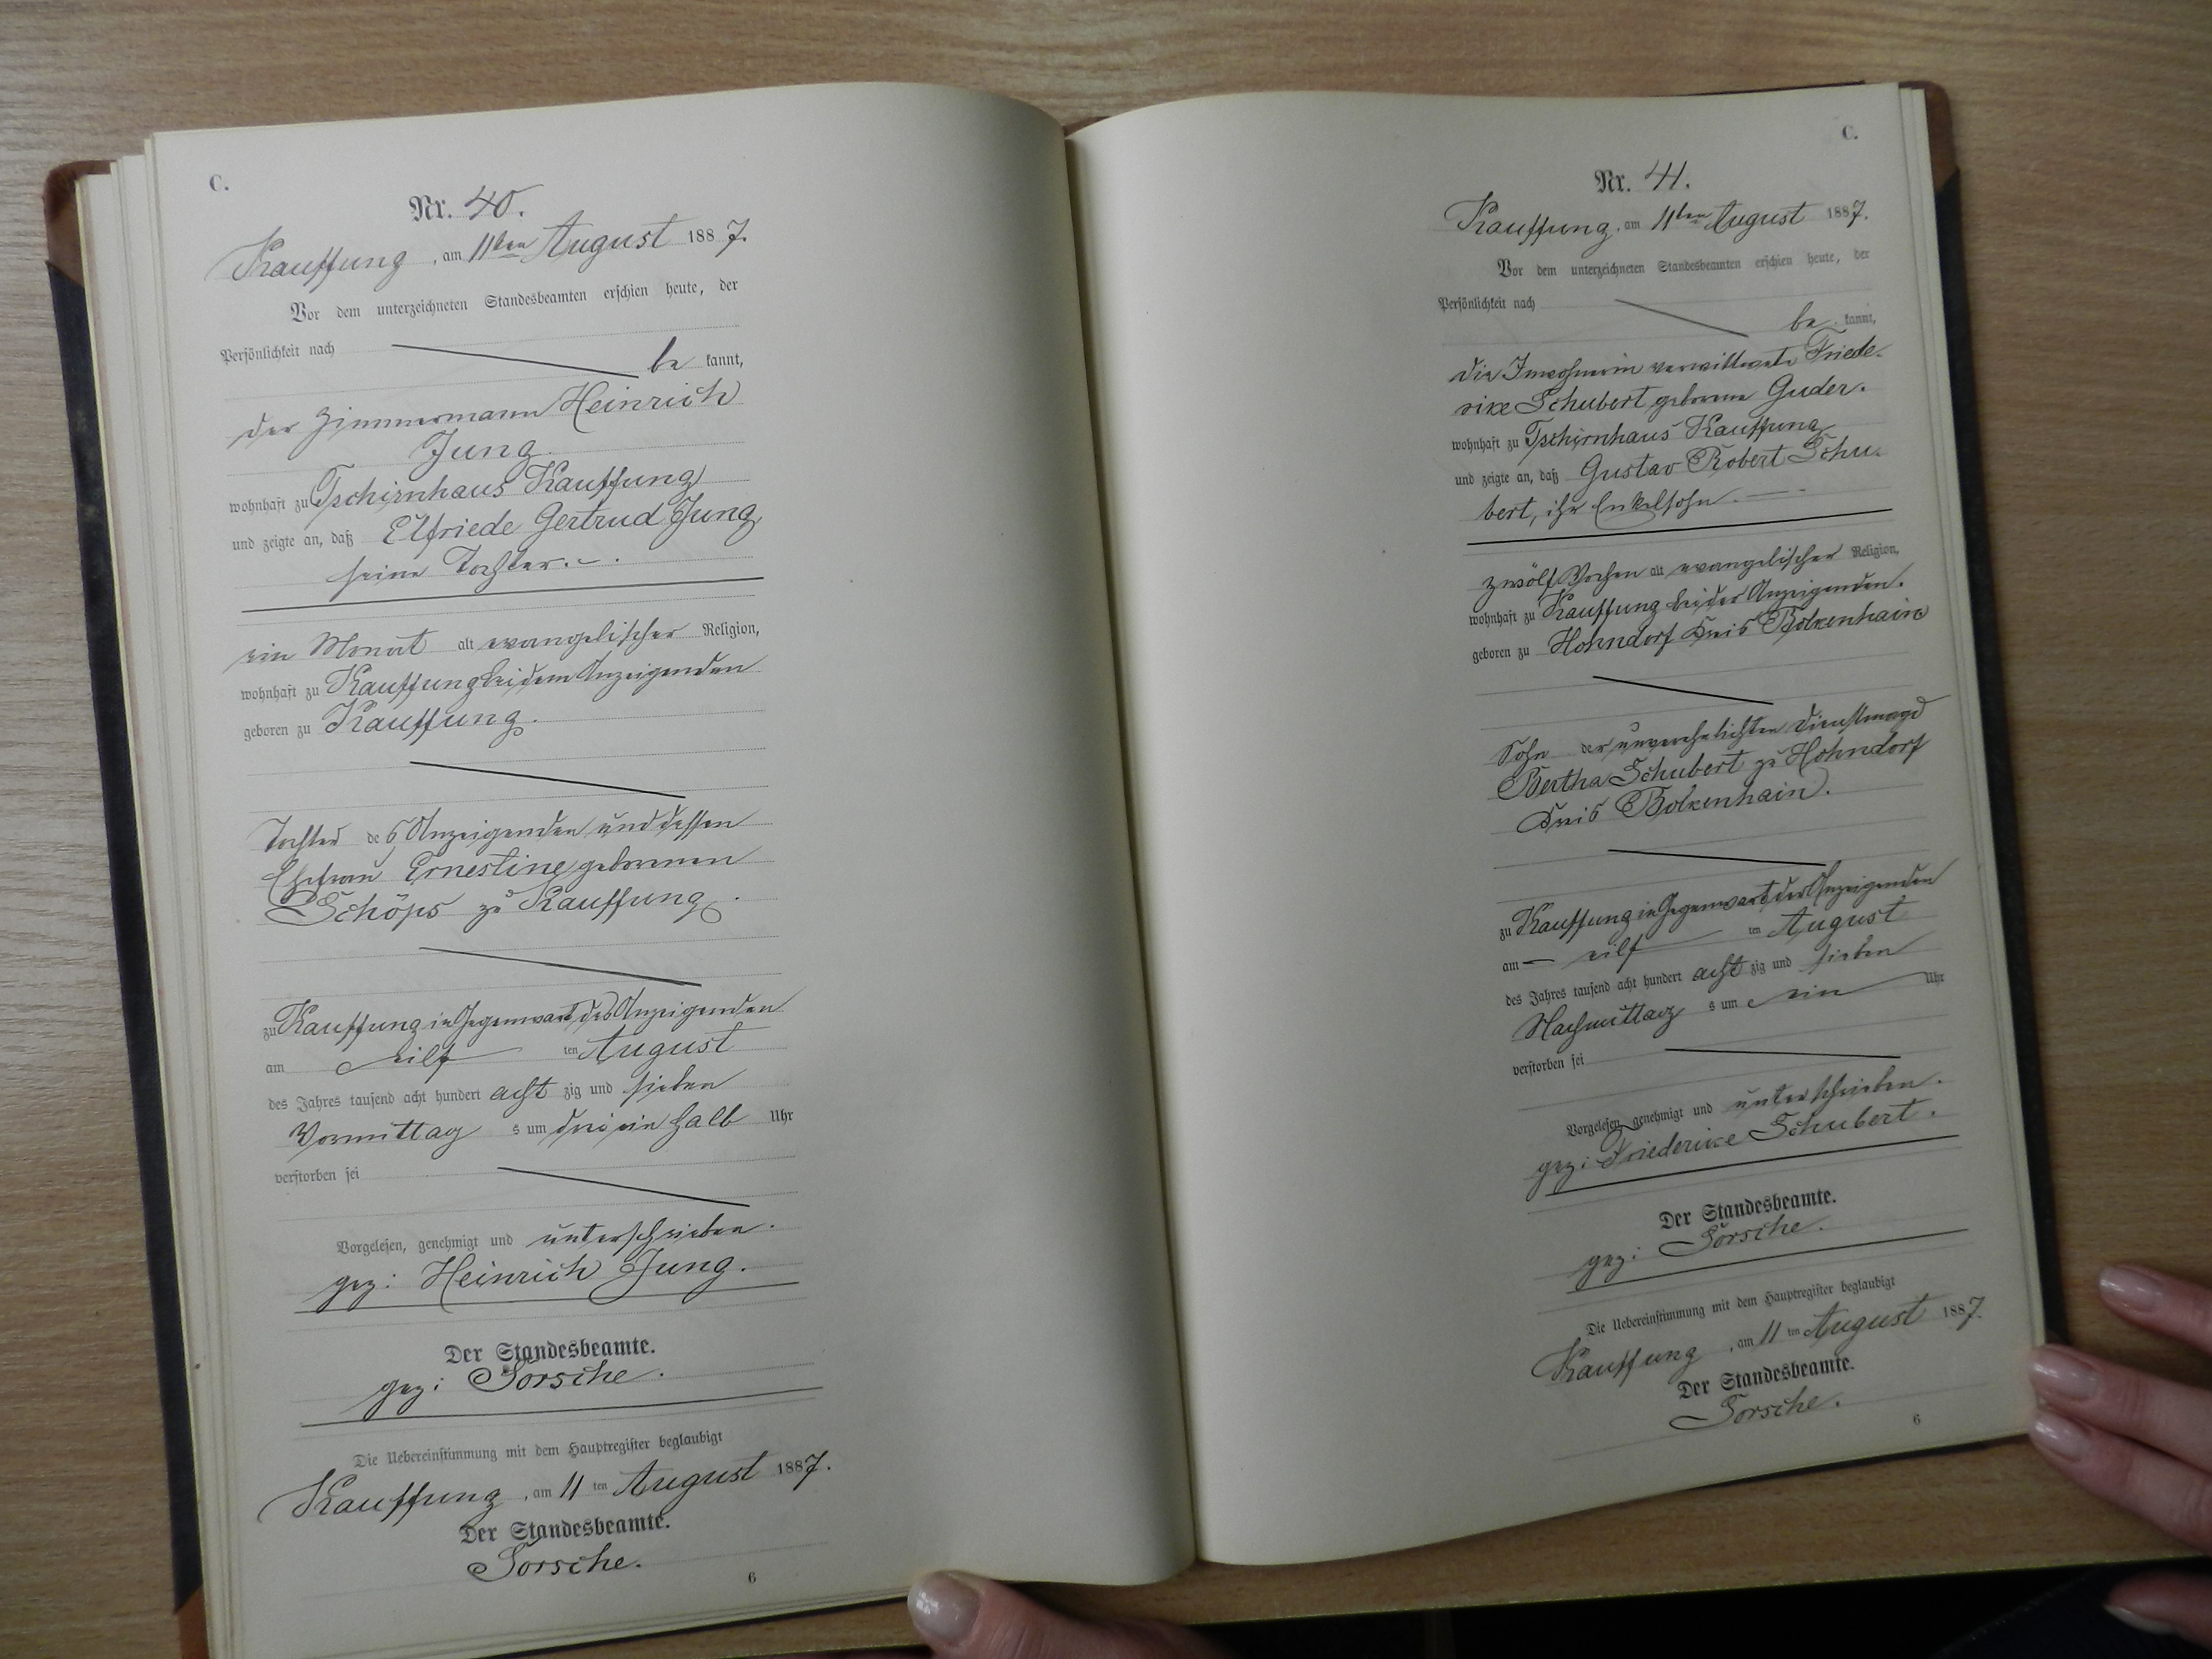 C.
Nr. 40.
Kauffung, am 11ten August 1887.
Vor dem unterzeichneten Standesbeamten erschien heute, der
Persönlichkeit nach
be kannt,
der Zimmermann Heinrich
Jung
wohnhaft zu Tschirnhaus Kauffung
und zeigte an, daß Elfriede Gertrud Jung,
seine Tochter.
ein Monat alt evangelischer Religion,
wohnhaft zu Kauffung bei dem Anzeigenden
geboren zu Kauffung.
Tochter des Anzeigenden und dessen
Ehefrau Ernestine geborenen
Schöps zu Kauffung.
zu Kauffung in Gegenwart des Anzeigenden
am eilf ten August
des Jahres tausend acht hundert acht zig und sieben
Vormittag s um drei ein halb Uhr
verstorben sei
Vorgelesen, genehmigt und unterschrieben.
gez: Heinrich Jung.
Der Standesbeamte.
gez: Sorsche.
Die Uebereinstimmung mit dem Hauptregister beglaubigt
Kauffung, am 11 ten August 1887.
Der Standesbeamte.
Sorsche.
6
C.
Nr. 41.
Kauffung, am 11ten August 1887.
Vor dem unterzeichneten Standesbeamten erschien heute, der
Persönlichkeit nach
be kannt,
die Inwohnerin verwittwete Friede-
rike Schubert geborene Guder.
wohnhaft zu Tschirnhaus Kauffung
und zeigte an, daß Gustav Robert Schu-
bert, ihr Enkelsohn.
zwölf Wochen alt evangelischer Religion,
wohnhaft zu Kauffung bei der Anzeigenden.
geboren zu Hohndorf Kreis Bolkenhain
Sohn der unverehelichten Dienstmagd
Bertha Schubert zu Hohndorf
Kreis Bolkenhain.
zu Kauffung in Gegenwart der Anzeigenden
am eilf ten August
des Jahres tausend acht hundert acht zig und sieben
Nachmittag s um ein Uhr
verstorben sei
Vorgelesen, genehmigt und unterschrieben.
gez: Friederike Schubert.
Der Standesbeamte.
gez: Sorsche.
Die Uebereinstimmung mit dem Hauptregister beglaubigt
Kauffung, am 11 ten August 1887.
Der Standesbeamte.
Sorsche.
6